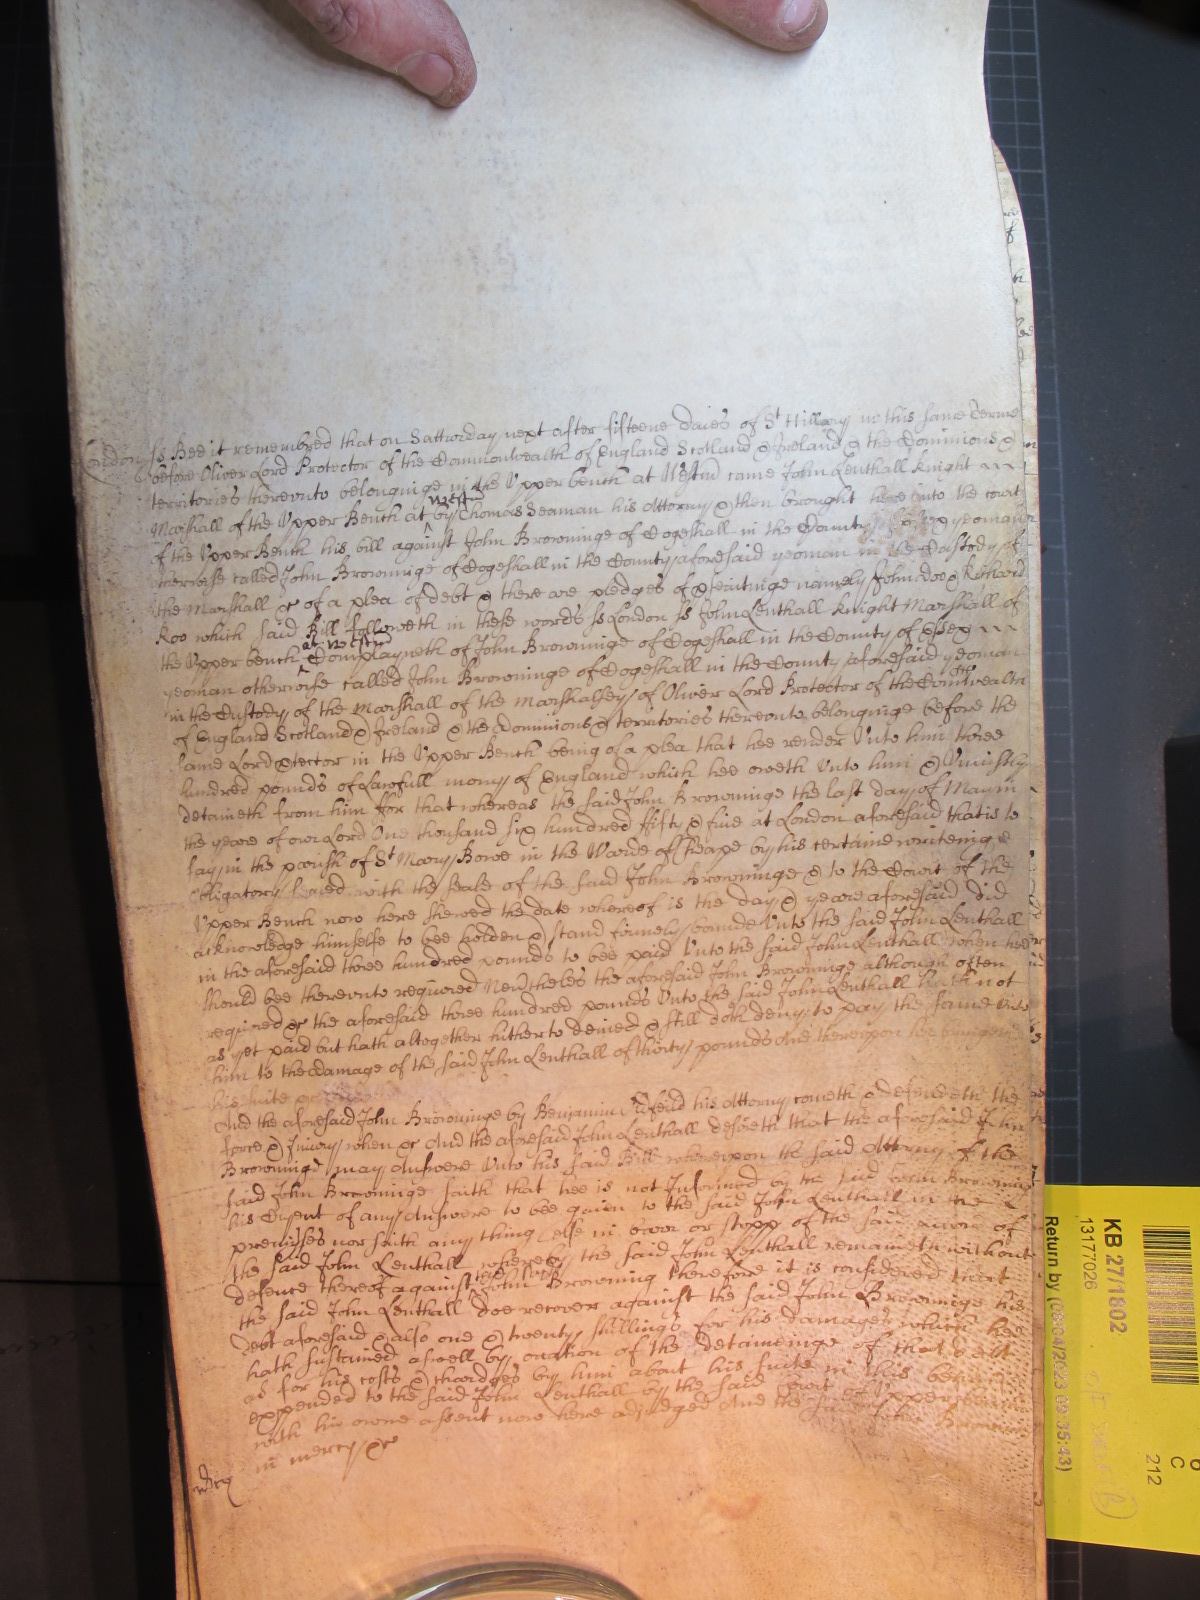 London ss Bee it remembred that on Satturday next after fifteene daies of St Hillary in this same Terme
before Oliver Lord Protector of the Commonwealth of England Scotland & Ireland & the Dominions &
territories thereunto belonginge in the Upper bench at Westm came John Lenthall knight
Marshall of the Upper Bench at westm by Thomas Seaman his Attorny & then brought here into the court
of the Upper Bench his bill against John Browninge of Cogeshall in the County of Essex yeoman
otherwise called John Browninge of Cogeshall in the County aforesaid yeoman in the Custody of
the Marshall &c of a plea of debt & there are pledges of &secutinge namely John Doo & Richard
Roo which said Bill followeth in these words ss London ss John Lenthall knight Marshall of
the Upper bench at westm Complayneth of John Browninge of Cogeshall in the County of Essex
yeoman otherwise called John Browninge of Cogeshall in the County aforesaid yeoman
in the Custody of the Marshall of the Marshallsey of Oliver Lord Protector of the Comonwealth
of England Scotland & Ireland & the Dominions & territories thereunto belonginge before the
same Lord Protector in the Upper Bench being of a plea that hee render Unto him three
hundred pounds of Lawfull mony of England which hee oweth Unto him & Uniustly
detaineth from him For that whereas the said John Browninge the last day of May in
the yeare of our Lord One thousand six hundred fifty & five at London aforesaid that is to
say in the parish of St Mary Bowe in the Warde of Cheape by his certaine writeinge
Obligatory sealed with the seale of the said John Browninge & to the Court of the
Upper Bench now here shewed the date whereof is the day & yeare aforesaid did
acknowledge himselfe to bee holden & stand firmely bounde Unto the said John Lenthall
in the aforesaid three hundred pounds to bee paid Unto the said John Lenthall when hee
should bee thereunto required Nevertheles the aforesaid John Browninge although often
required &c the aforesaid three hundred pounds Unto the said John Lenthall hath not
as yet paid but hath altogether hitherto denied & still doth deny to pay the same Unto
him to the damage of the said John Lenthall of thirty pounds And thereupon hee
his suite &c
And the aforesaid John Browninge by Benjamin his Attorny cometh & defendeth the
force & Iniury when &c And the aforesaid John Lenthall desireth that the aforesaid John
Browninge may Answere Unto his said Bill whereupon the said Attorny of the
said John Browninge saith that hee is not Informed by the said John Browninge
his Clyent of any Answere to bee given to the said John Lenthall in the
premises nor saith any thing else in barr or stopp of the said accion of
the said John Lenthall whereby the said John Lenthall remaineth without
defence thereof against the said John Browning therefore it is considered that
the said John Lenthall doe recover against the said John Browninge his
debt aforesaid & also one & twenty shillings for his damages which hee
hath sustained aswell by occation of the detaineinge of that debt
as for his costs & chardges by him about his suite in this behalfe
expended to the said John Lenthall by the said Court of Upper bench
with his owne assent now here adjudged And the said John Browninge
in mercy &c
KB 27/1802
13177026
Return by (06/04/2023 09:35:43)
C
212